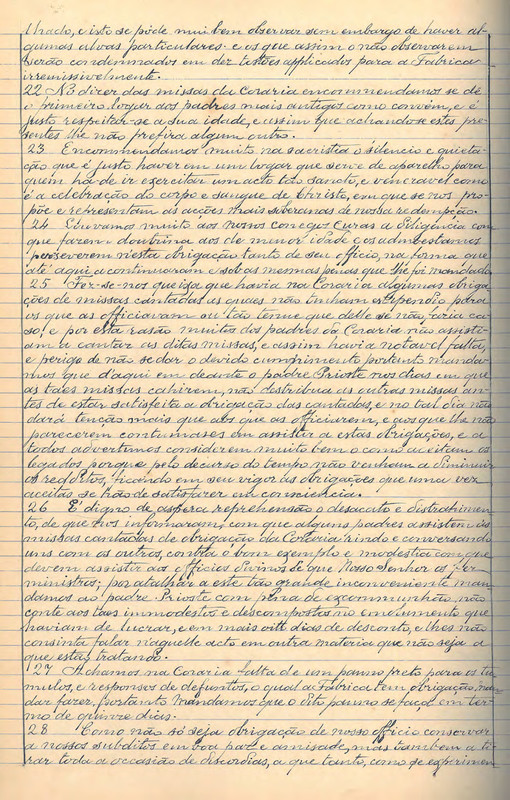 lhado, e isto se póde mui bem observar sem embargo de haver al-
gumas alvas particulares e os que assim o não observarem
serão condemnados em dez tostões applicados para a Fabrica
irremissivelmente.
22 No dizer das missas da Coraria encommendamos se dê
o primeiro logar aos padres mais antigos como convém, e é
justo respeitar-se a sua idade, e assim que achando-se estes pre-
sentes lhe não prefira algum outro.
23 Encommendamos muito na sacristia o silencio e quieta-
ção que é justo haver em um logar que serve de aparelho para
quem ha de ir exercitar um acto tão sancto, e veneravel como
é a celebração do corpo e sangue de Christo, em que se nos pro-
põe e representam as acções mais soberanas de nossa redempção.
24 Louvamos muito aos nossos conegos Curas a diligencia com
que fazem doutrina aos de menor idade e os admoestamos
perseverem n'esta obrigação tanto de seu officio, na forma que
até aqui a continuaram e sob as mesmas penas que lhe foi mandado.
25 Fez-se-nos queixa que havia na Coraria algumas obriga
ções de missas cantadas as quaes não tinham estipendio para
os que as officiavam ou tão tenue que delle se não faria ca-
so, e por esta rasão muitos dos padres da Coraria não assisti-
am a cantar as ditas missas, e assim havia notavel falta,
e perigo de não se dar o devido cumprimento portanto manda-
mos que d'aqui em deante o padre Prioste nos dias em que
as taes missas cahirem, não distribua as outras missas an-
tes de estar satisfeita a obrigação das cantadas, e no tal dia não
dará tenção mais que aos que as officiarem, e aos que lhe não
parecerem contumases em assistir a estas obrigações, e a
todos advertimos considerem muito bem o como aceitam os
legados porque pelo decurso do tempo não venham a diminuir
os reditos, ficando em seu vigor as obrigações que uma vez
aceitas se hão de satisfazer em consciencia.
26 É digno de aspera reprehensão o desacato e distrahimen-
to, de que nos informaram, com que alguns padres assistem ás
missas cantadas de obrigação da Coraria rindo e conversando
uns com os outros, contra o bom exemplo e modestia com que
devem assistir aos officios Divinos de que Nosso Senhor os fez
ministros; por atalhar a este tão grande inconveniente man-
damos ao padre Prioste com pena de excommunhão, não
conte aos taes immodestos e descompostos no emolumento que
haviam de lucrar, e em mais oito dias de desconto, e lhes não
consinta falar n'aquelle acto em outra materia que não seja a
que estão tratando.
27 Achamos na Coraria falta de um panno preto para os tu-
mulos, e responsos de defuntos, o qual a Fabrica tem obrigação man
dar fazer, portanto mandamos que o dito panno se faça em ter-
mo de quinze dias.
28 Como não só seja obrigação de nosso officio conservar
a nossos subditos em boa paz e amisade, mas tambem a ti-
rar toda a occasião de discordias, a que tanto, como se experimen